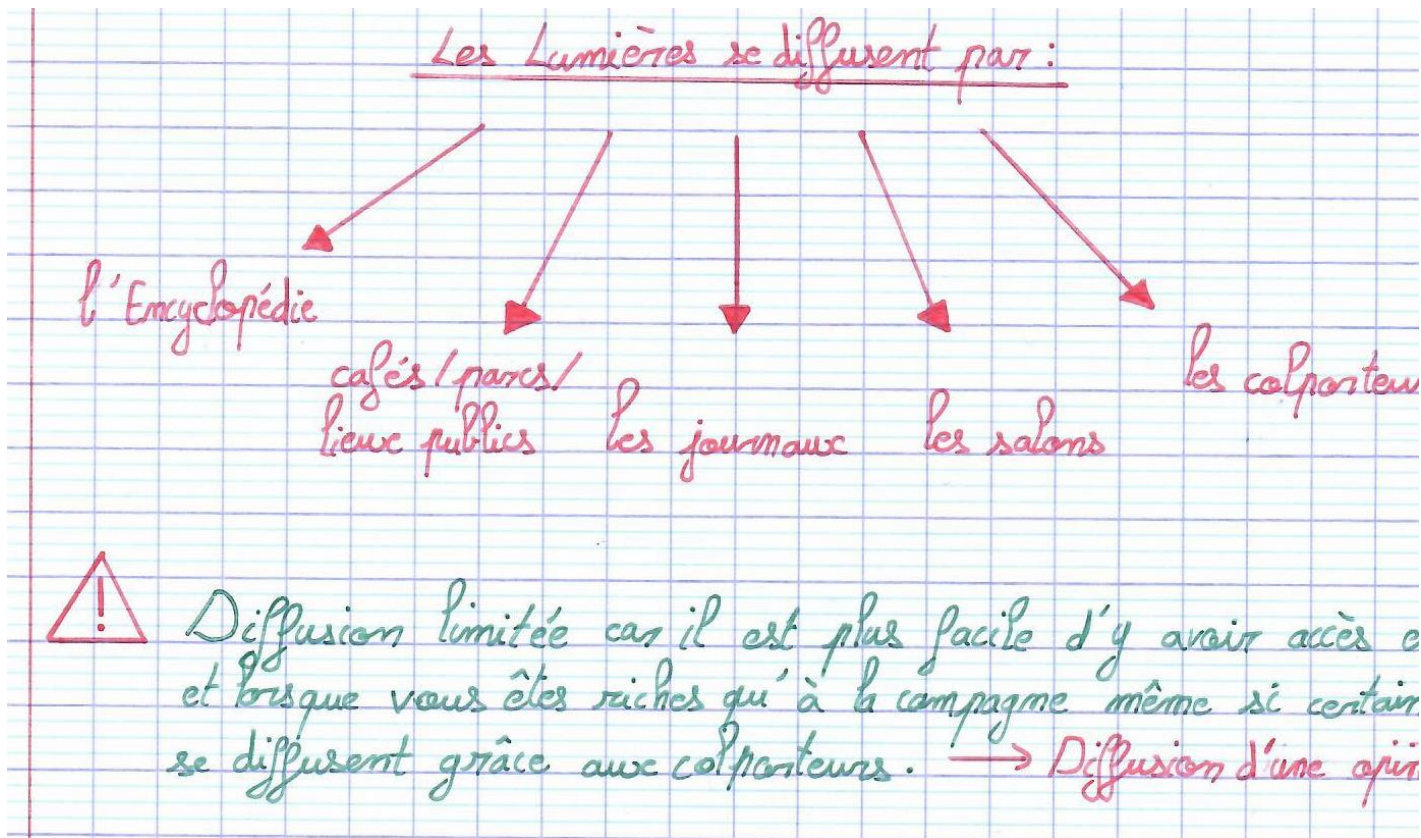 Les Lumières se diffusent par :
l'Encyclopédie
cafés/parcs/
lieux publics
les journaux
les salons
les colporteu
!
Diffusion limitée car il est plus facile d'y avoir accès e
et lorsque vous êtes riches qu'à la campagne même si certain
se diffusent grâce aux colporteurs. → Diffusion d'une opin